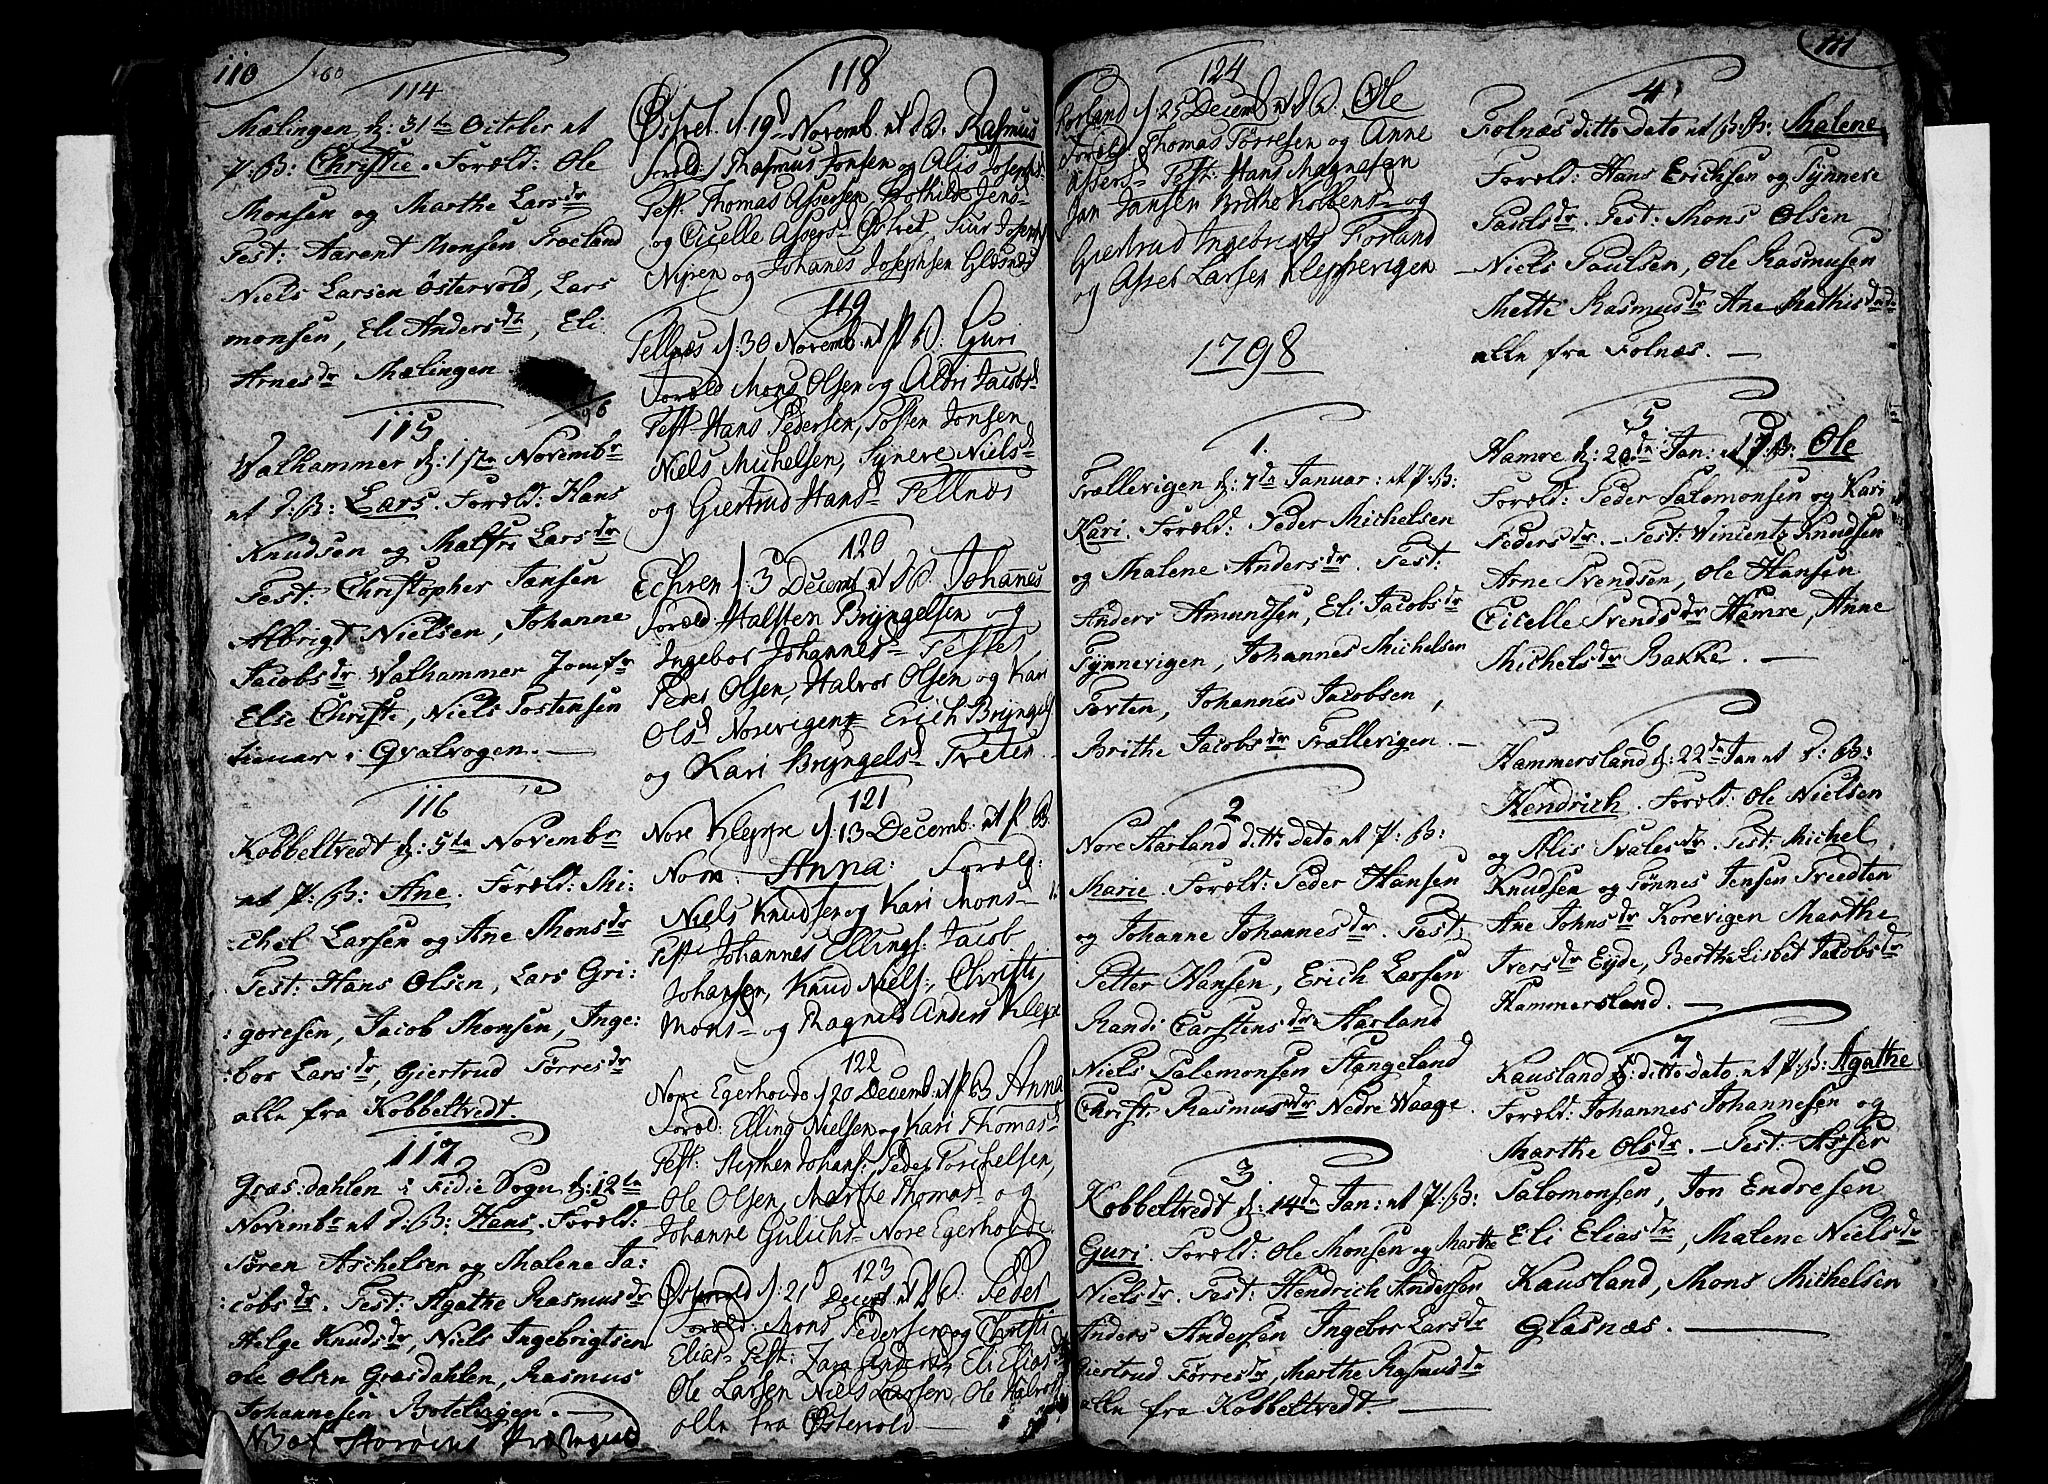 110
60
114
Mælingen d: 31te October ut
P: B: Christie. Foræld: Ole
Monsen og Marthe Larsdr
Test: Aarent Monsen Træland
Niels Larsen Østervold, Lars
monsen, Eli Andersdr, Eli
Arnesdr Mælingen.
115
Walhammer d: 1ste Novembr
ut d: B: Lars. Foræld: Hans
Knudsen og Malfri Larsdr
Test: Christopher Jansen
Albrigt Nielsen, Johanne
Jacobsdr Walhammer Jomfr
Else Christi, Niels Tostensen
tienar i Qvalvogen.
116
Kobbeltvedt d: 5te Novembr
ut P: B: Ane. Foræld: Mi:
chel Larsen og Ane Monsdr
Test: Hans Olsen, Lars Gri:
:goresen, Jacob Monsen, Inge:
:bor Larsdr, Giertrud Tørresdr
alle fra Kobbeltvedt.
117
Græsdahlen i Fidie Sogn d: 12te
Novembr ut d: B: Hans. Foræld:
Søren Aschelsen og Malene Ja:
:cobsdr. Test: Agathe Rasmusdr
Helge Knudsdr, Niels Ingebrigtsen
Ole Olsen Græsdahlen, Rasmus
Johannesen Botelvigen.
118
Østret d. 19d Novemb. ut d B. Rasmus
Foræld: Rasmus Jonsen og Alis Josephs
Test: Thomas Assersen, Bothilde Jens
og Cicelle Assers Østret, Siur Joseph
og Johanes Josephsen Glæsnæs
119
Tellnæs d: 30 Novemb. ut P B. Guri
Foræld Mons Olsen og Aldri Jacobsd
Test Hans Pedersen, Tosten Jonsen
Niels Michelsen, Syneve Nielsd
og Giertrud Hansd Tellnæs
120
Echren d. 3d Decemb ut d B. Johanes
Foræld: Halsten Bryngelsen og
Ingebor Johannesd Testes
Peder Olsen, Halvor Olsen og Kari
Olsd Norevigen Erich Bryngels
og Kari Bryngelsd
121
Nore Kleppe d. 13 Decemb. ut P B.
Nom: Anna: Foræld:
Niels Knudsen og Kari Mons
Test Johannes Ellings: Jacob
Johansen, Knud Niels., Christi
Mons og Ragnild Anders Kleppe
122
Nore Egerhovde d 20 Decemb. ut P B Anna
Foræld: Elling Nielsen og Kari Thomasd
Test: Stephen Johans: Peder Torchelsen,
Ole Olsen, Marthe Thomasd og
Johanne Gulichs Nore Egerhovde
123
Østervold d. 21d Decemb ut d B. Peder
Foræld: Mons Pedersen og Christi
Elias Test: Zara Anders Eli Elias
Ole Larsen Niels Larsen, Ole Halvors
alle fra Østervold
124
Forland d. 25 Decemb ut d B. Ole
Foræld. Thomas Tørresen og Anne
Assersd Test: Hans Magnesen
Jan Jansen Brithe Kolbens og
Giertrud Ingebrigts Forland
og Asser Larsen Kleppevigen
1798
1.
Trællevigen d: 7de Januar: ut P: B:
Kari. Foræld: Peder Michelsen
og Malene Andersdr. Test:
Anders Amundsen, Eli Jacobsdr
Tynnevigen, Johannes Michelsen
Torten, Johannes Jacobsen,
Brithe Jacobsdr Trællevigen.
2
Nore Aarland ditto Dato ut P: B:
Marie. Foræld: Peder Hansen
og Johanne Johannesdr. Test:
Petter Hansen, Erich Larsen
Randi Carstensdr Aarland
Niels Salemonsen Stangeland
Christi Rasmusdr Nedre Waage.
3
Kobbeltvedt d: 14de Jan: ut P: B:
Guri. Foræld: Ole Monsen og Marthe
Nielsdr. Test: Hendrich Andersen
Anders Andersen Ingebor Larsdr
Giertrud Tørresdr, Marthe Rasmusdr
alle fra Kobbeltvedt.
111
4
Folnæs ditto Dato ut P: B: Malene
Foræld: Hans Erichsen og Synneve
Paulsdr. Test: Mons Olsen
Niels Paulsen, Ole Rasmusen
Mette Rasmusdr Ane Mathisdr
alle fra Folnæs.
5
Hamre d: 20de Jan: ut P: B: Ole
Foræld: Peder Salomonsen og Kari
Pedersdr. Test: Vincentz Knudsen
Arne Svendsen, Ole Hansen
Cicelle Svendsdr Hamre, Anne
Michelsdr Bakke.
6
Hammersland d: 22de Jan ut d: B:
Hendrich. Foræld: Ole Nielsen
og Alis Svalesdr. Test: Michel
Knudsen og Tønnes Jensen Treedten
Ane Johnsdr Korevigen Marthe
Iversdr Eyde, Berthe Lisbet Jacobsdr
Hammersland.
7
Kausland d: ditto Dato ut P: B: Agathe
Foræld: Johannes Johannesen og
Marthe Olsdr. Test: Asser
Salomonsen, Jon Endresen
Eli Eliasdr, Malene Nielsdr
Kausland, Mons Michelsen
Glæsnæs.